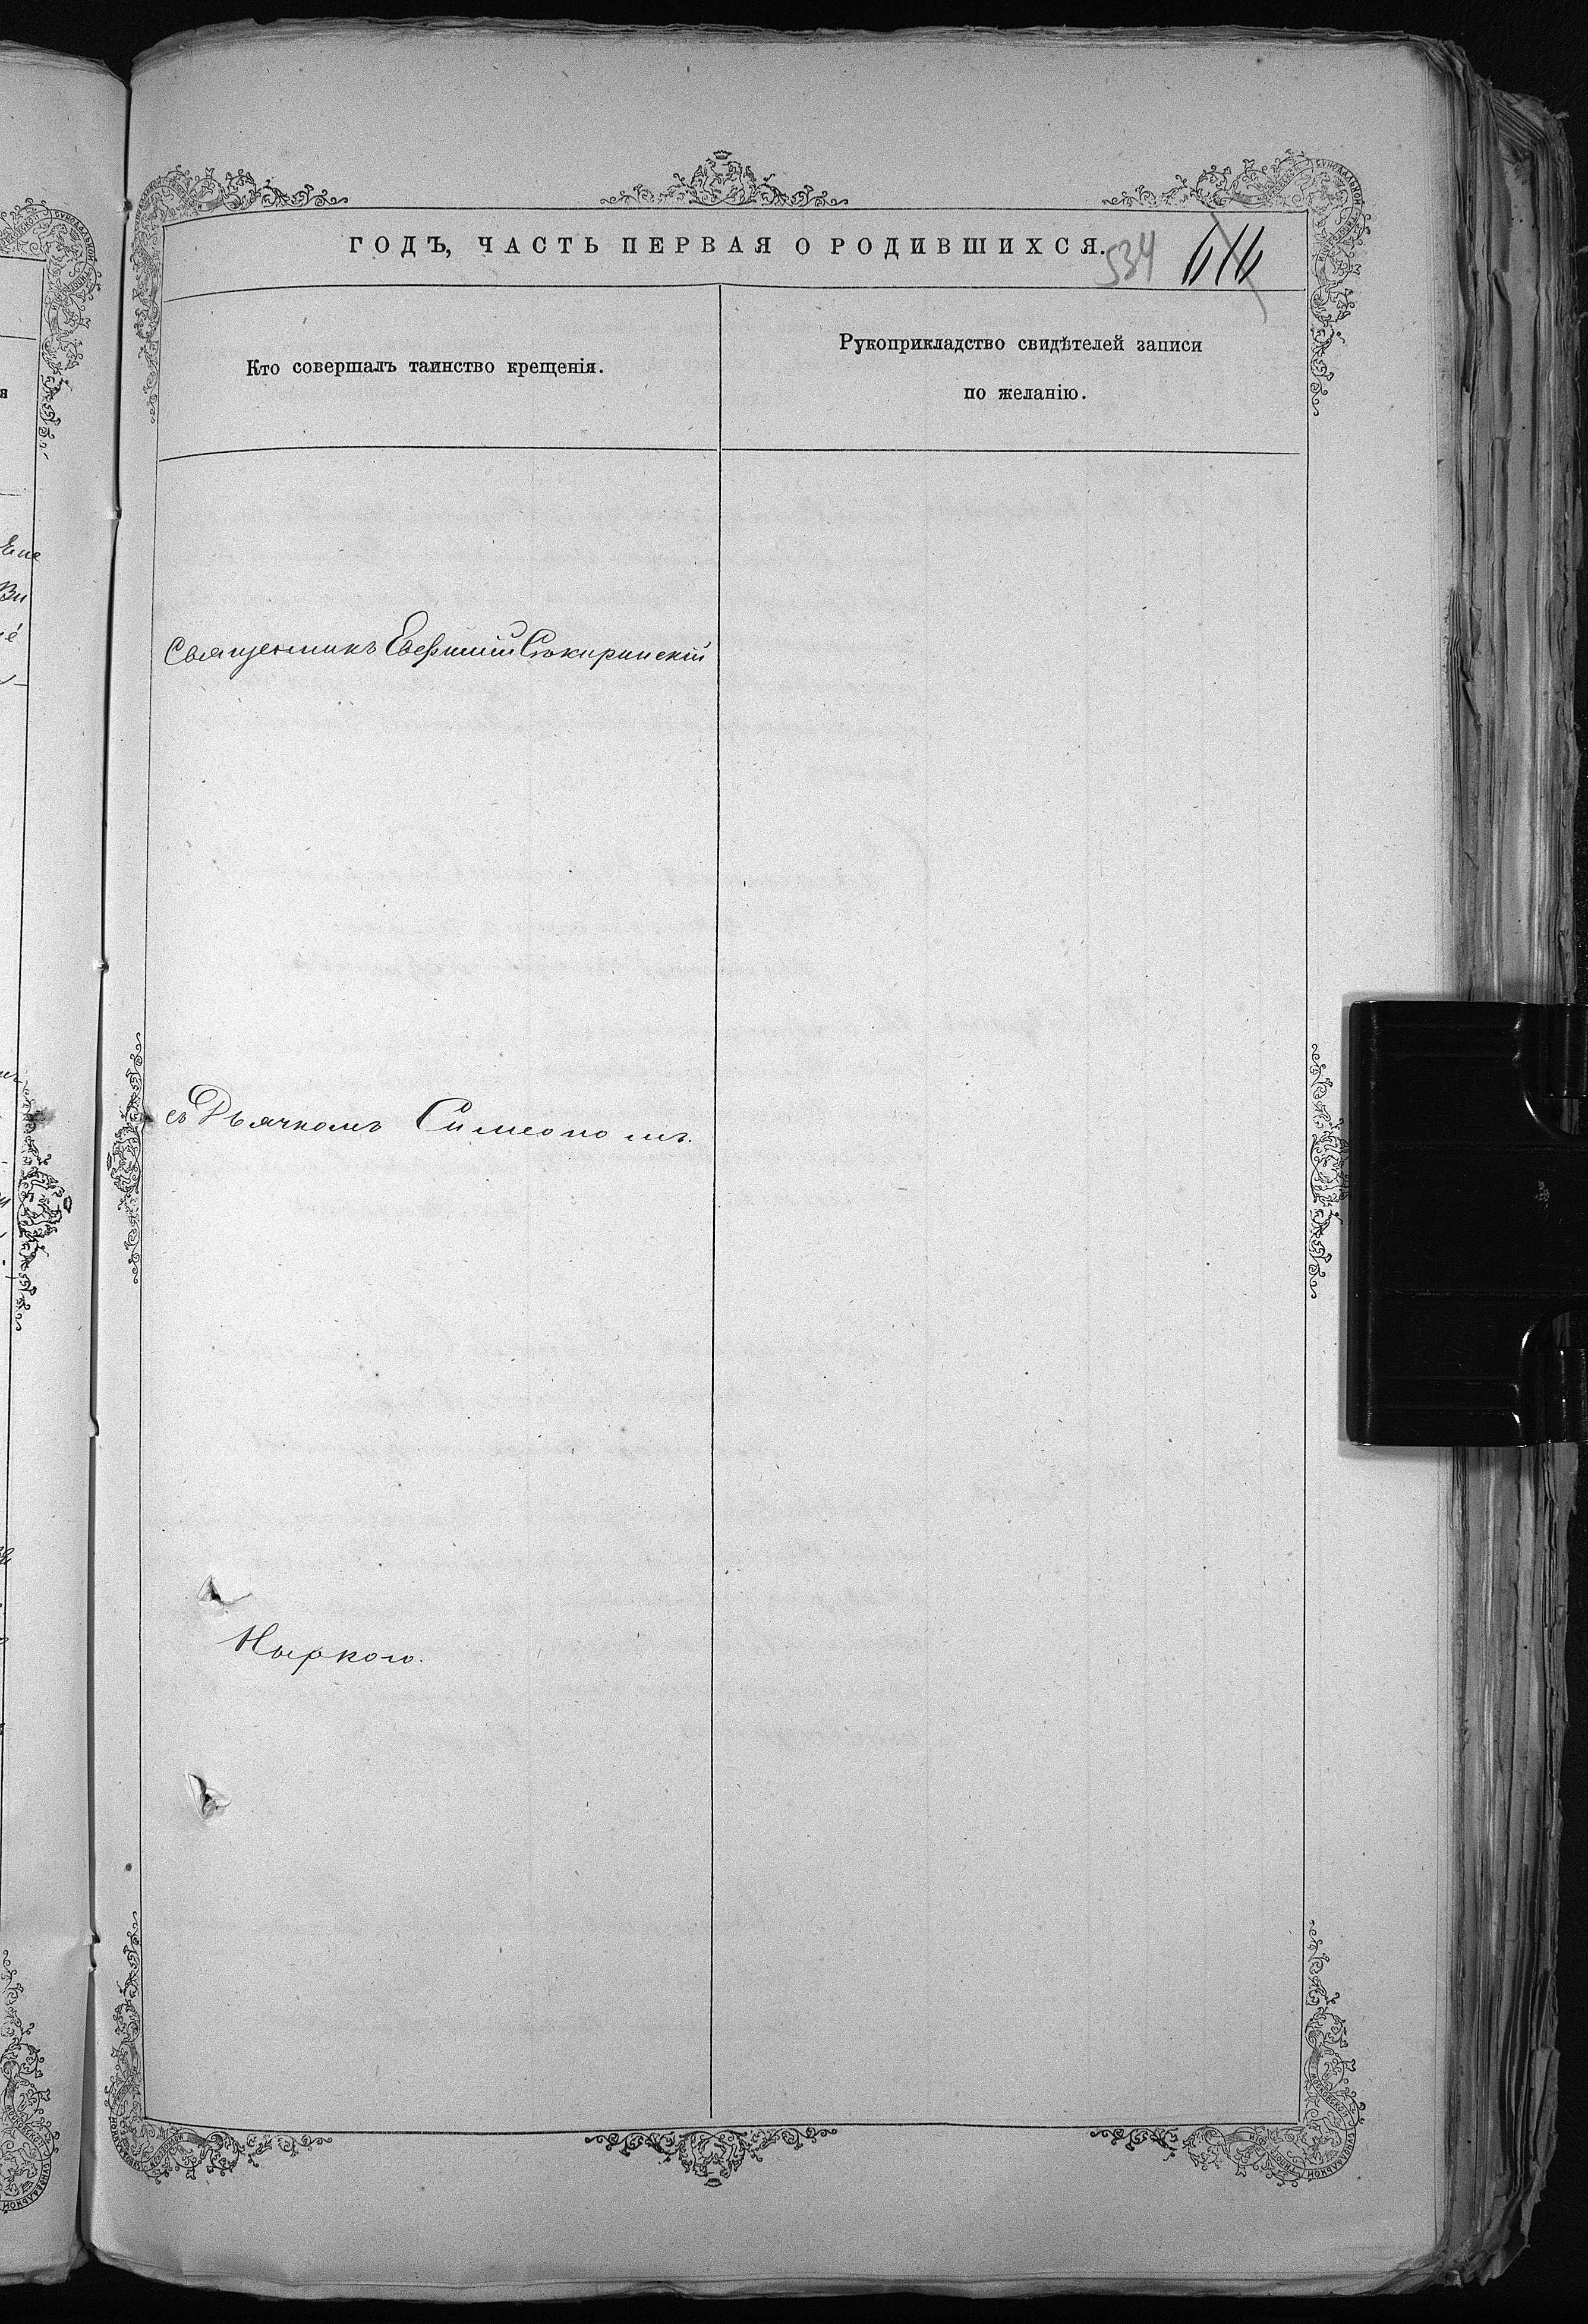 ГОДЪ, ЧАСТЬ ПЕРВАЯ О РОДИВШИХСЯ.
534 616
Кто совершалъ таинство крещенія.
Рукоприкладство свидѣтелей записи
по желанію.
Священникъ Евфимій Сѣкиринскій
съ Дьячкомъ Симеономъ.
Ныркою.